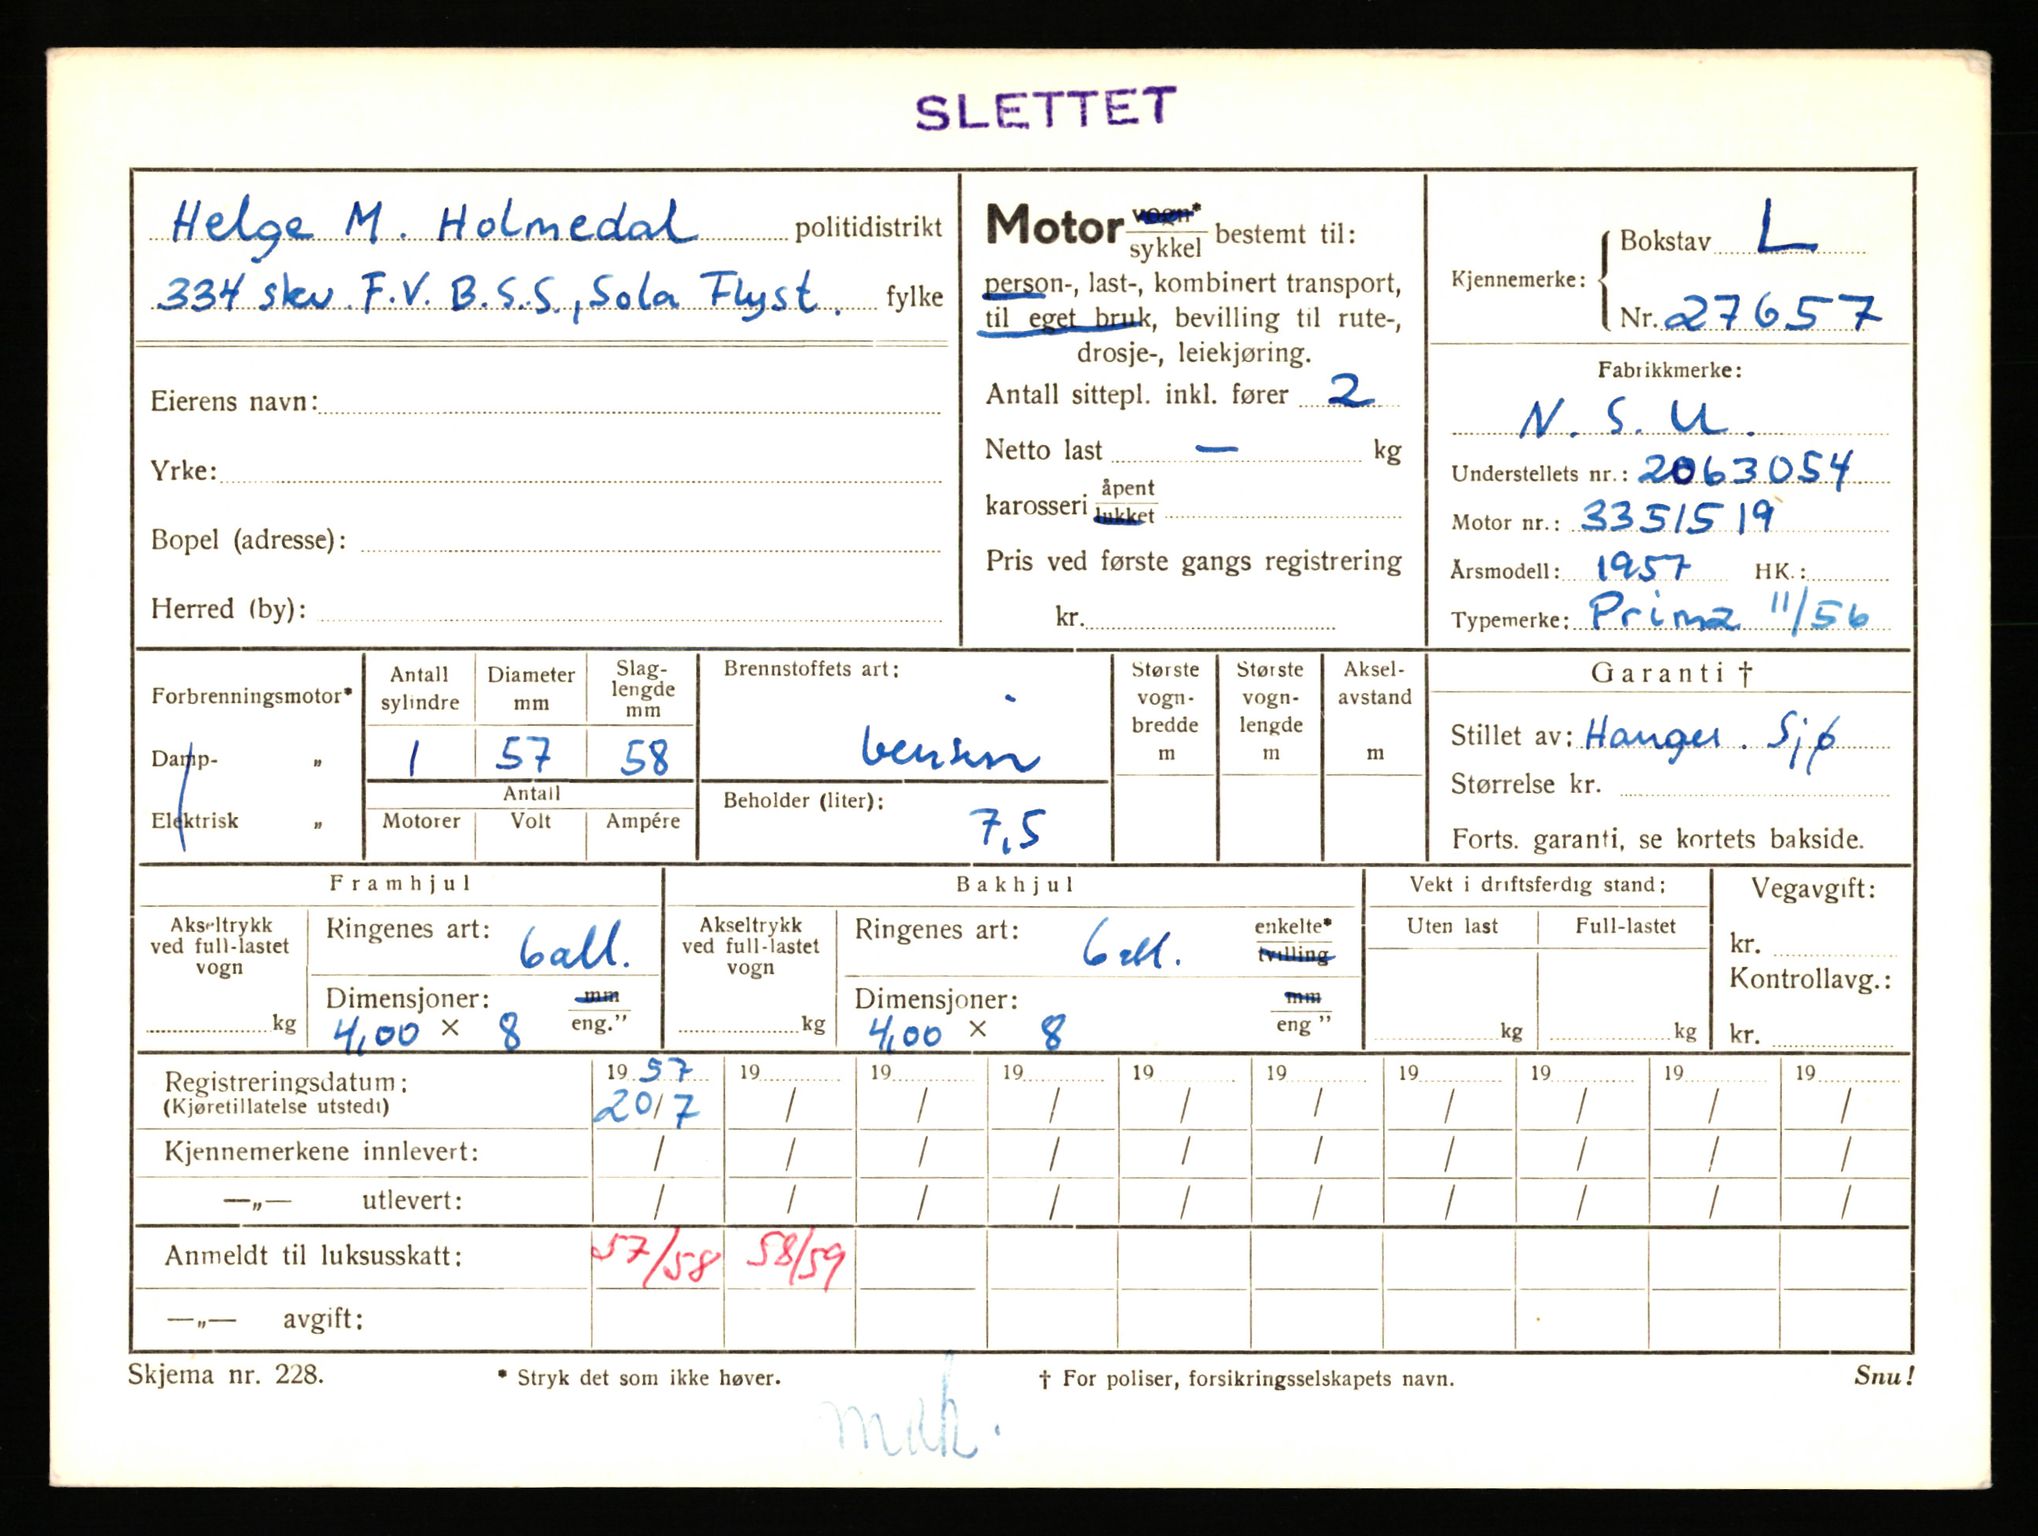 SLETTET
Helge M. Holmedal politidistrikt
334 skv. F.V. B.S.S., Sola Flyst. fylke
Eierens navn:
Yrke:
Bopel (adresse):
Herred (by):
Motor vogn*
sykkel bestemt til:
person-, last-, kombinert transport,
til eget bruk, bevilling til rute-,
drosje-, leiekjøring.
Antall sittepl. inkl. fører 2
Netto last — kg
karosseri åpent
lukket
Pris ved første gangs registrering
kr.
Kjennemerke: Bokstav L
Nr. 27657
Fabrikkmerke:
N. S. U.
Understellets nr.: 2063054
Motor nr.: 3351519
Årsmodell: 1957 HK.:
Typemerke: Prima 11/56
Forbrenningsmotor*
Damp- „
Elektrisk „
Antall sylindre
1
Diameter mm
57
Slag-
lengde
mm
58
Antall
Motorer Volt Ampére
Brennstoffets art:
bensin
Beholder (liter):
7,5
Største
vogn-
bredde
m
Største
vogn-
lengde
m
Aksel-
avstand
m
Garanti †
Stillet av: Hauges. Sjø
Størrelse kr.
Forts. garanti, se kortets bakside.
Framhjul
Akseltrykk
ved full-lastet
vogn
kg
Ringenes art: ball.
Dimensjoner: mm
4,00 × 8 eng.”
Bakhjul
Akseltrykk
ved full-lastet
vogn
kg
Ringenes art: ball. enkelte*
tvilling
Dimensjoner: mm
4,00 × 8 eng ”
Vekt i driftsferdig stand:
Uten last Full-lastet
kg kg
Vegavgift:
kr.
Kontrollavg.:
kr.
Registreringsdatum: 19 57 19 19 19 19 19 19 19 19 19
(Kjøretillatelse utstedt) 20/7 / / / / / / / / /
Kjennemerkene innlevert: / / / / / / / / / /
—„— utlevert: / / / / / / / / / /
Anmeldt til luksusskatt: 57/58 58/59
—„— avgift:
Skjema nr. 228. * Stryk det som ikke høver. † For poliser, forsikringsselskapets navn. Snu!